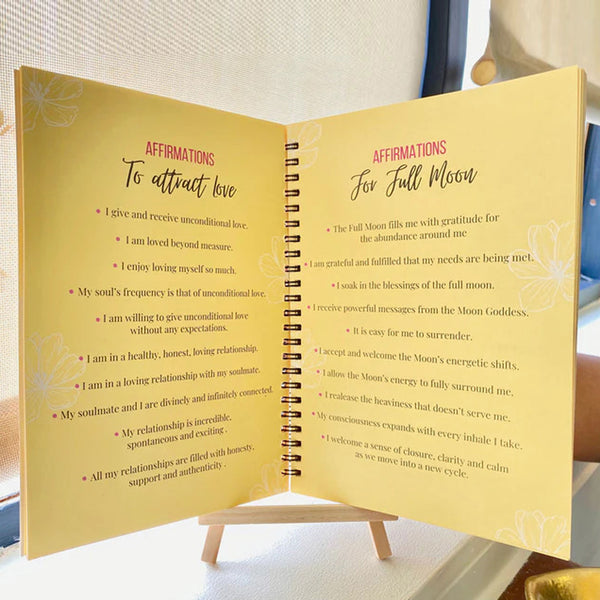 AFFIRMATIONS
To attract love
• I give and receive unconditional love.
• I am loved beyond measure.
• I enjoy loving myself so much.
• My soul's frequency is that of unconditional love.
• I am willing to give unconditional love
without any expectations.
• I am in a healthy, honest, loving relationship.
• I am in a loving relationship with my soulmate.
• My soulmate and I are divinely and infinitely connected.
• My relationship is incredible,
spontaneous and exciting .
• All my relationships are filled with honesty,
support and authenticity .
AFFIRMATIONS
For Full Moon
• The Full Moon fills me with gratitude for
the abundance around me
• I am grateful and fulfilled that my needs are being met.
• I soak in the blessings of the full moon.
• I receive powerful messages from the Moon Goddess.
• It is easy for me to surrender.
• I accept and welcome the Moon's energetic shifts.
• I allow the Moon's energy to fully surround me.
• I realease the heaviness that doesn't serve me.
• My consciousness expands with every inhale I take.
• I welcome a sense of closure, clarity and calm
as we move into a new cycle.